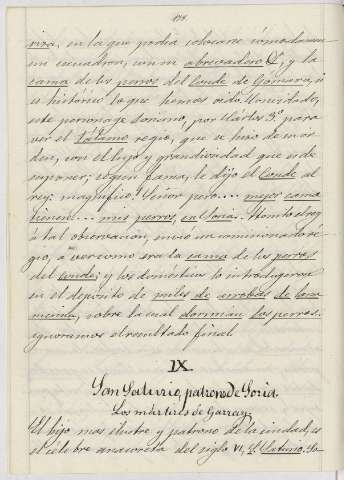 riza, en la que podia colocarse cómodamen
un escuadron, con su abrevadero &, y la
cama de los perros del Conde de Gómara, si
es histórico lo que hemos oido. Convidado,
este personage Soriano, por Carlos 3º para
ver el tálamo regio, que se hizo de su ór-
den, con el lujo y grandiosidad que es de
suponer; regia cama, le dijo el Conde al
rey: magnifica! Señor pero.... mejor cama
tienen.... mis perros, en Soria. Atónito el rey
á tal observacion, envió un comisionado re-
gio, á ver como era la cama de los perros
del Conde; y los domésticos lo introdugeron
en el depósito de miles de arrobas de lana
merina, sobre la cual dormian los perros.
ignoramos el resultado final
IX.
San Saturio, patrono de Soria.
Los mártires de Garray.
El hijo mas ilustre y patrono de la ciudad, es
el célebre anacoreta del siglo VI, S. Saturio. Sa-